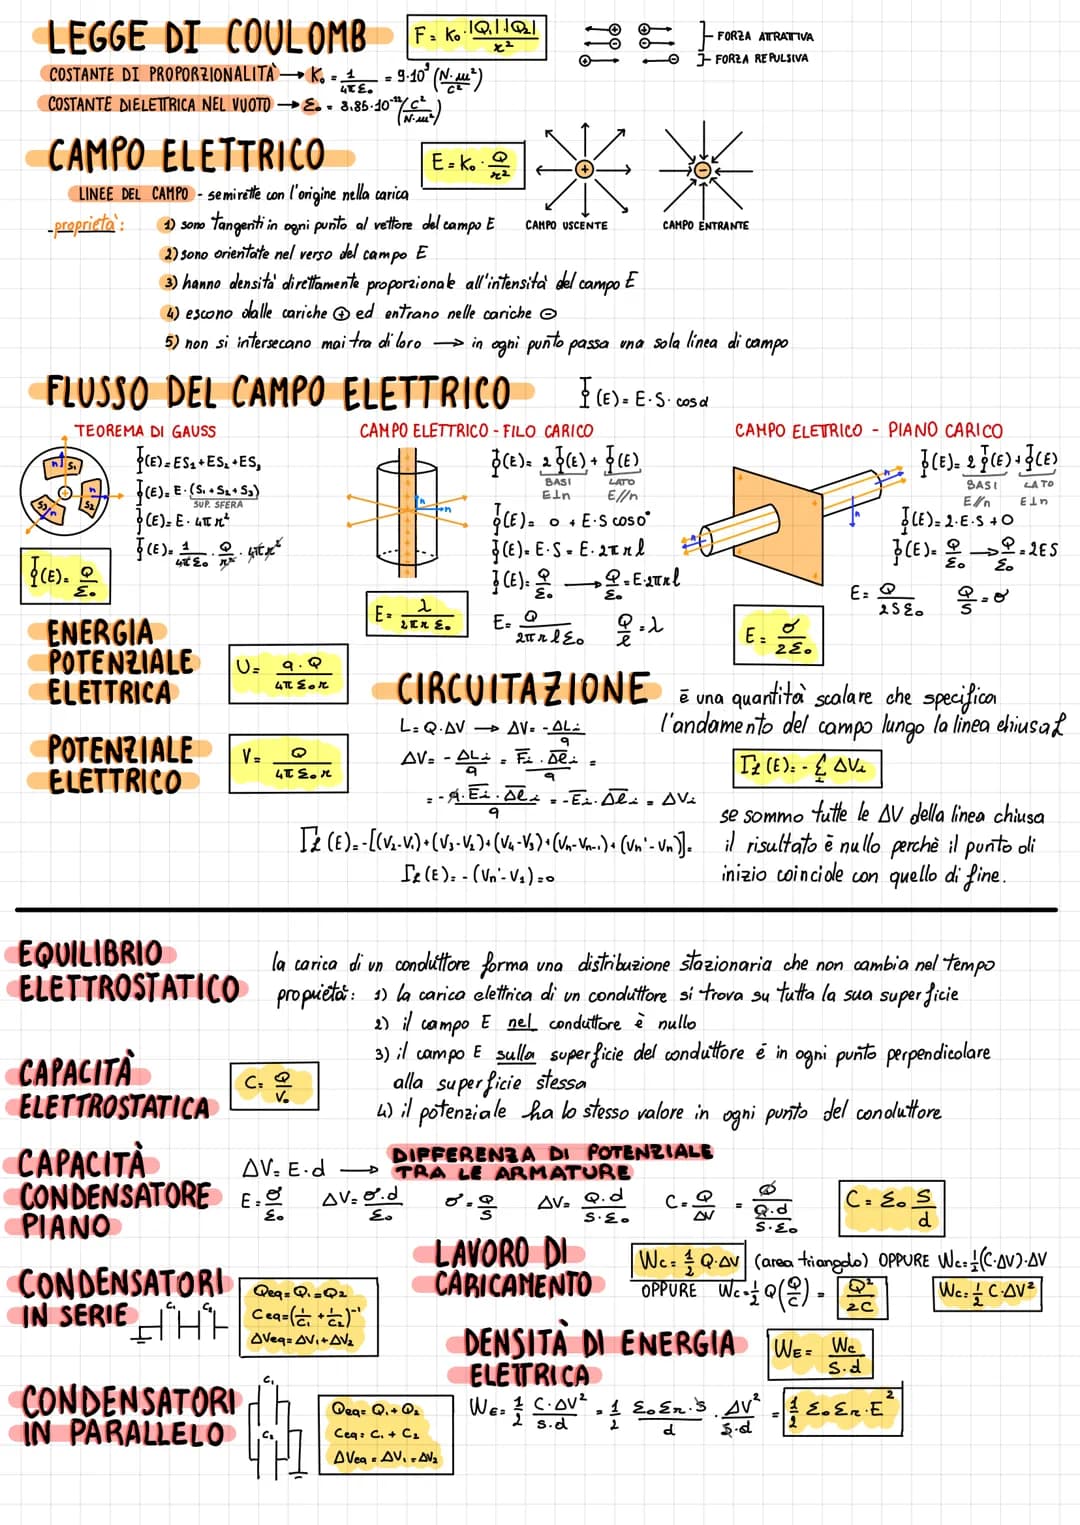 LEGGE DI COULOMB
F = K₀ · |Q₁|·|Q₂| / r²
FORZA ATTRATTIVA
FORZA REPULSIVA
COSTANTE DI PROPORZIONALITÀ → K₀ = 1/4πε₀ = 9·10⁹ (N·m²/C²)
COSTANTE DIELETTRICA NEL VUOTO → ε₀ = 8.85·10⁻¹² (C²/N·m²)
CAMPO ELETTRICO
E = K₀ · Q/r²
LINEE DEL CAMPO - semirette con l'origine nella carica
CAMPO USCENTE
CAMPO ENTRANTE
- proprietà:
1) sono tangenti in ogni punto al vettore del campo E
2) sono orientate nel verso del campo E
3) hanno densità direttamente proporzionale all'intensità del campo E
4) escono dalle cariche ⊕ ed entrano nelle cariche ⊖
5) non si intersecano mai tra di loro → in ogni punto passa una sola linea di campo
FLUSSO DEL CAMPO ELETTRICO
Φ(E) = E·S·cosα
TEOREMA DI GAUSS
n S₁
n S₂
S₃ n
Φ(E) = ES₁ + ES₂ + ES₃
Φ(E) = E·(S₁+S₂+S₃)
SUP. SFERA
Φ(E) = E·4πr²
Φ(E) = 1/4πε₀ · Q/r² · 4πr²
Φ(E) = Q/ε₀
CAMPO ELETTRICO - FILO CARICO
n
n
Φ(E) = 2Φ(E) + Φ(E)
BASI LATO
E⊥n E//n
Φ(E) = 0 + E·S cos0°
Φ(E) = E·S = E·2πrl
Φ(E) = Q/ε₀ → Q/ε₀ = E·2πrl
E = Q/2πrlε₀ Q/l = λ
E = λ/2πrε₀
CAMPO ELETTRICO - PIANO CARICO
n
n
n
Φ(E) = 2Φ(E) + Φ(E)
BASI LATO
E//n E⊥n
Φ(E) = 2·E·S + 0
Φ(E) = Q/ε₀ → Q/ε₀ = 2ES
E = Q/2Sε₀ Q/S = σ
E = σ/2ε₀
ENERGIA
POTENZIALE
ELETTRICA
U = q·Q/4πε₀r
POTENZIALE
ELETTRICO
V = Q/4πε₀r
CIRCUITAZIONE è una quantità scalare che specifica
l'andamento del campo lungo la linea chiusa ℒ
L = Q·ΔV → ΔV = -ΔLᵢ/q
ΔV = -ΔLᵢ/q = Fᵢ·Δlᵢ/q =
= -q·Eᵢ·Δlᵢ/q = -Eᵢ·Δlᵢ = ΔVᵢ
Γℒ(E) = -Σᵢ ΔVᵢ
Γℒ(E) = -[(V₂-V₁)+(V₃-V₂)+(V₄-V₃)+(Vn-Vn-₁)+(Vn'-Vn)] =
Γℒ(E) = -(Vn'-V₁) = 0
se sommo tutte le ΔV della linea chiusa
il risultato è nullo perchè il punto di
inizio coincide con quello di fine.
EQUILIBRIO
ELETTROSTATICO
la carica di un conduttore forma una distribuzione stazionaria che non cambia nel tempo
proprietà: 1) la carica elettrica di un conduttore si trova su tutta la sua superficie
2) il campo E nel conduttore è nullo
3) il campo E sulla superficie del conduttore è in ogni punto perpendicolare
alla superficie stessa
4) il potenziale ha lo stesso valore in ogni punto del conduttore
CAPACITÀ
ELETTROSTATICA
C = Q/V₀
CAPACITÀ
CONDENSATORE
PIANO
ΔV = E·d → DIFFERENZA DI POTENZIALE
TRA LE ARMATURE
E = σ/ε₀ ΔV = σ·d/ε₀ σ = Q/S ΔV = Q·d/S·ε₀ C = Q/ΔV = Q/(Q·d/S·ε₀)
C = ε₀ S/d
LAVORO DI
CARICAMENTO
Wc = 1/2 Q·ΔV (area triangolo) OPPURE Wc = 1/2(C·ΔV)·ΔV
OPPURE Wc = 1/2 Q(Q/C) = Q²/2C
Wc = 1/2 C·ΔV²
CONDENSATORI
IN SERIE
C₁ C₂
Qeq = Q₁ = Q₂
Ceq = (1/C₁ + 1/C₂)⁻¹
ΔVeq = ΔV₁ + ΔV₂
DENSITÀ DI ENERGIA
ELETTRICA
WE = Wc/S·d
WE = 1/2 C·ΔV²/S·d = 1/2 ε₀εr·S/d · ΔV²/S·d = 1/2 ε₀εr·E²
CONDENSATORI
IN PARALLELO
C₁
C₂
Qeq = Q₁ + Q₂
Ceq = C₁ + C₂
ΔVeq = ΔV₁ = ΔV₂